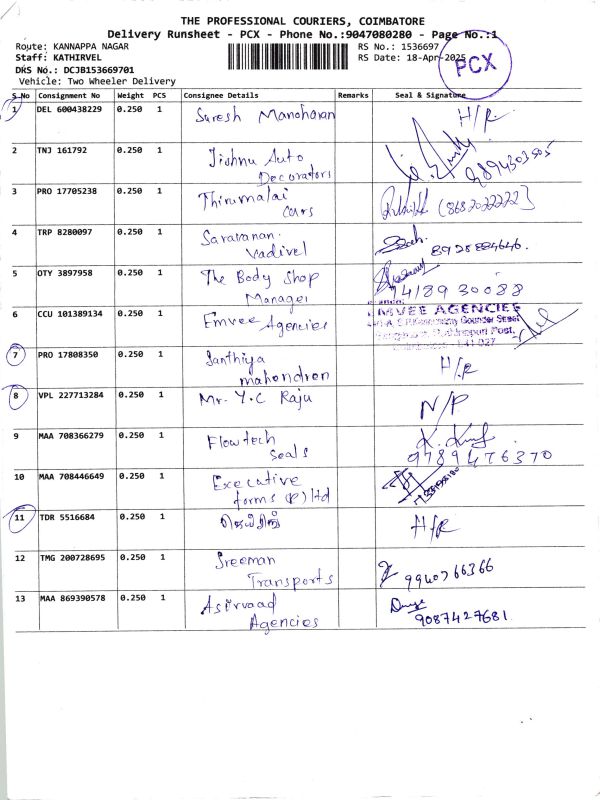 THE PROFESSIONAL COURIERS, COIMBATORE
Delivery Runsheet - PCX - Phone No.:9047080280 - Page No.:1
Route: KANNAPPA NAGAR RS No.: 1536697
Staff: KATHIRVEL RS Date: 18-Apr-2025
PCX
DRS No.: DCJB153669701
Vehicle: Two Wheeler Delivery
S.No Consignment No Weight PCS Consignee Details Remarks Seal & Signature
1 DEL 600438229 0.250 1 Suresh Manoharan H/R
2 TNJ 161792 0.250 1 Jishnu Auto
Decorators 9894303505
3 PRO 17705238 0.250 1 Thirumalai
cars (8682022222)
4 TRP 8280097 0.250 1 Saravanan.
Vadivel 8925884646.
5 OTY 3897958 0.250 1 The Body Shop
Manager 7418930088
6 CCU 101389134 0.250 1 Emvee EMVEE AGENCIES
Agencies
7 PRO 17808350 0.250 1 Santhiya
mahendren H/R
8 VPL 227713284 0.250 1 Mr. Y.C Raju N/P
9 MAA 708366279 0.250 1 Flowtech
Seals 9789476370
10 MAA 708446649 0.250 1 Executive
forms (P) ltd
11 TDR 5516684 0.250 1 H/R
12 TMG 200728695 0.250 1 Sreeman
Transports 9940766366
13 MAA 869390578 0.250 1 Asirvaad
Agencies 9087427681